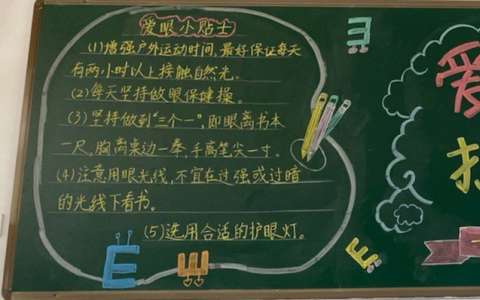 爱眼小贴士
(1)增强户外运动时间,最好保证每天
有两小时以上接触自然光。
(2)每天坚持做眼保健操。
(3)坚持做到“三个一”,即眼离书本
一尺,胸离桌边一拳,手离笔尖一寸。
(4)注意用眼光线,不宜在过强或过暗
的光线下看书。
(5)选用合适的护眼灯。
E
E
E
E
爱